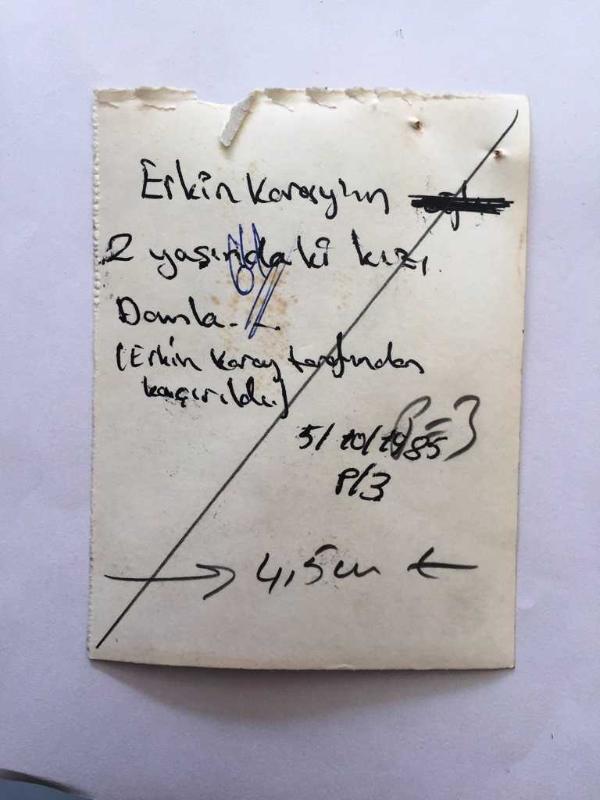 Erkin Koray'ın
2 yaşındaki kızı
Damla...
(Erkin Koray tarafından
kaçırıldı)
5/10/1985
P/3
→ 4,5 cm ←